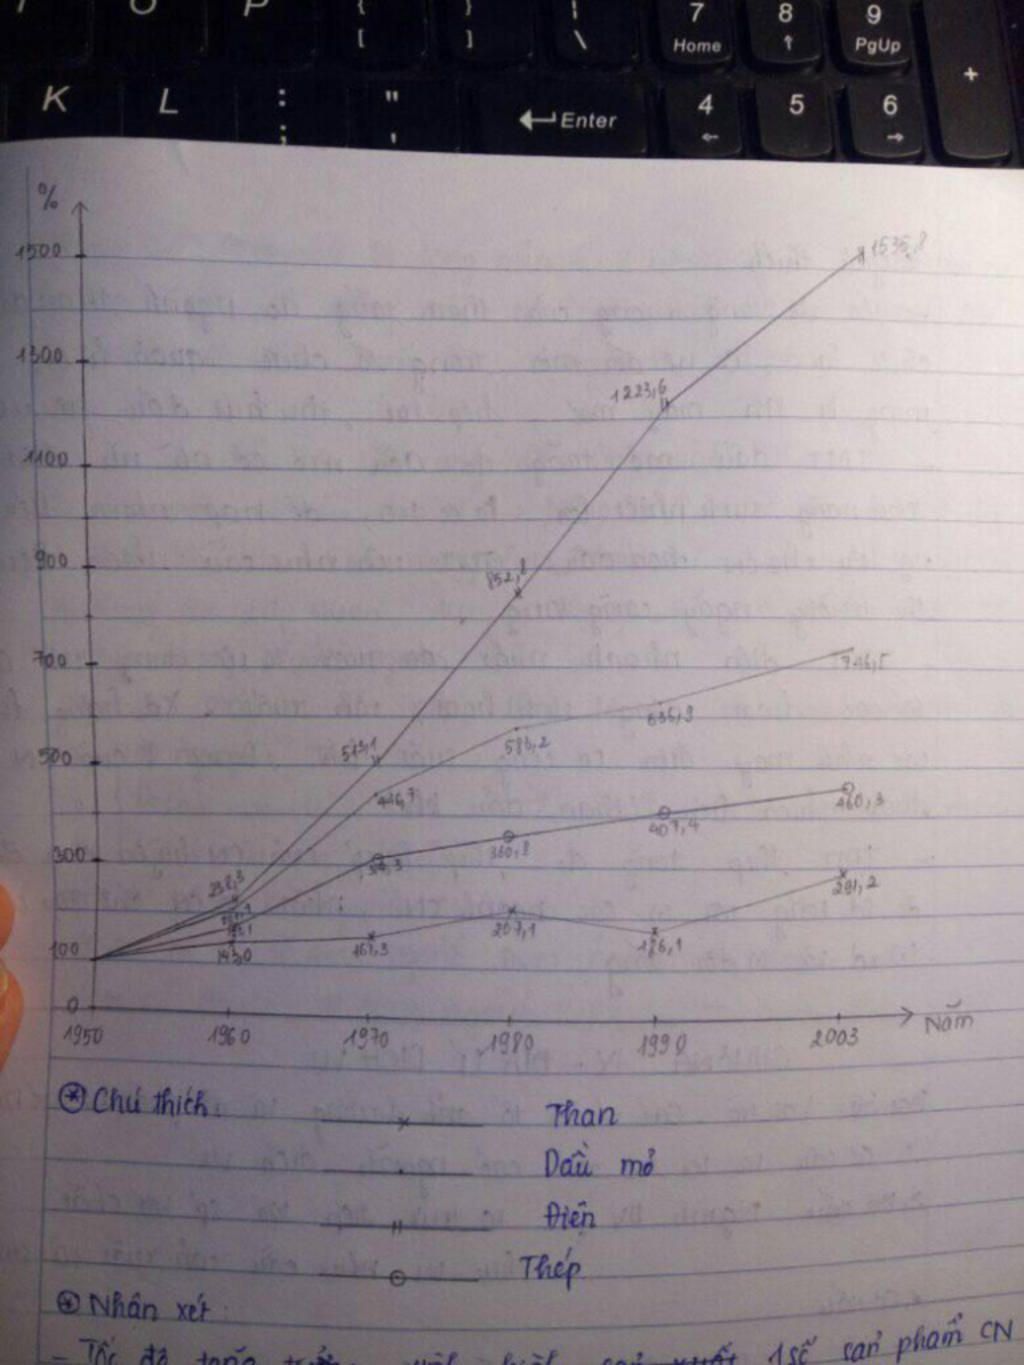 O P { } | 7 8 9
[ ] \ Home ↑ PgUp
+
K L : " Enter 4 5 6
; ' ← →
%
1500
1535,8
1300
1223,6
1100
900
852,8
700
746,5
636,9
586,2
500
513,1
446,7
460,3
407,4
360,8
300
314,3
291,2
238,3
207,1
186,1
161,3
143,0
100
0
1950 1960 1970 1980 1990 2003 Năm
⊛ Chú thích
Than
Dầu mỏ
Điện
Thép
⊛ Nhận xét:
- Tốc độ tăng trưởng xuất 1 số sản phẩm CN